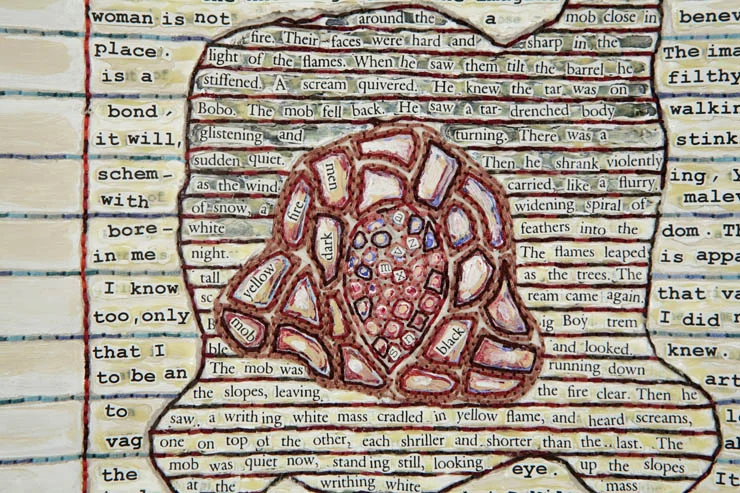 woman is not around the a mob close in benev
fire. Their faces were hard and sharp in the
place. light of the flames. When he saw them tilt the barrel he The ima
is a stiffened. A scream quivered. He knew the tar was on filthy
bond, Bobo. The mob fell back. He saw a tar- drenched body walkin
it will, glistening and turning. There was a stink
sudden quiet. Then he shrank violently
schem- as the wind men carried, like a flurry ing, y
with of snow, a fire widening spiral of malev
bore- white dark feathers into the dom. Th
in me night. The flames leaped is appa
tall yellow as the trees. The
I know sc ream came again. that va
too, only B mob ig Boy trem I did n
that I ble black and looked. knew.
to be an The mob was running down art
the slopes, leaving the fire clear. Then he
to saw a writhing white mass cradled in yellow flame, and heard screams,
vag one on top of the other, each shriller and shorter than the last. The
the mob was quiet now, standing still, looking eye. up the slopes It
at the writhing white mass